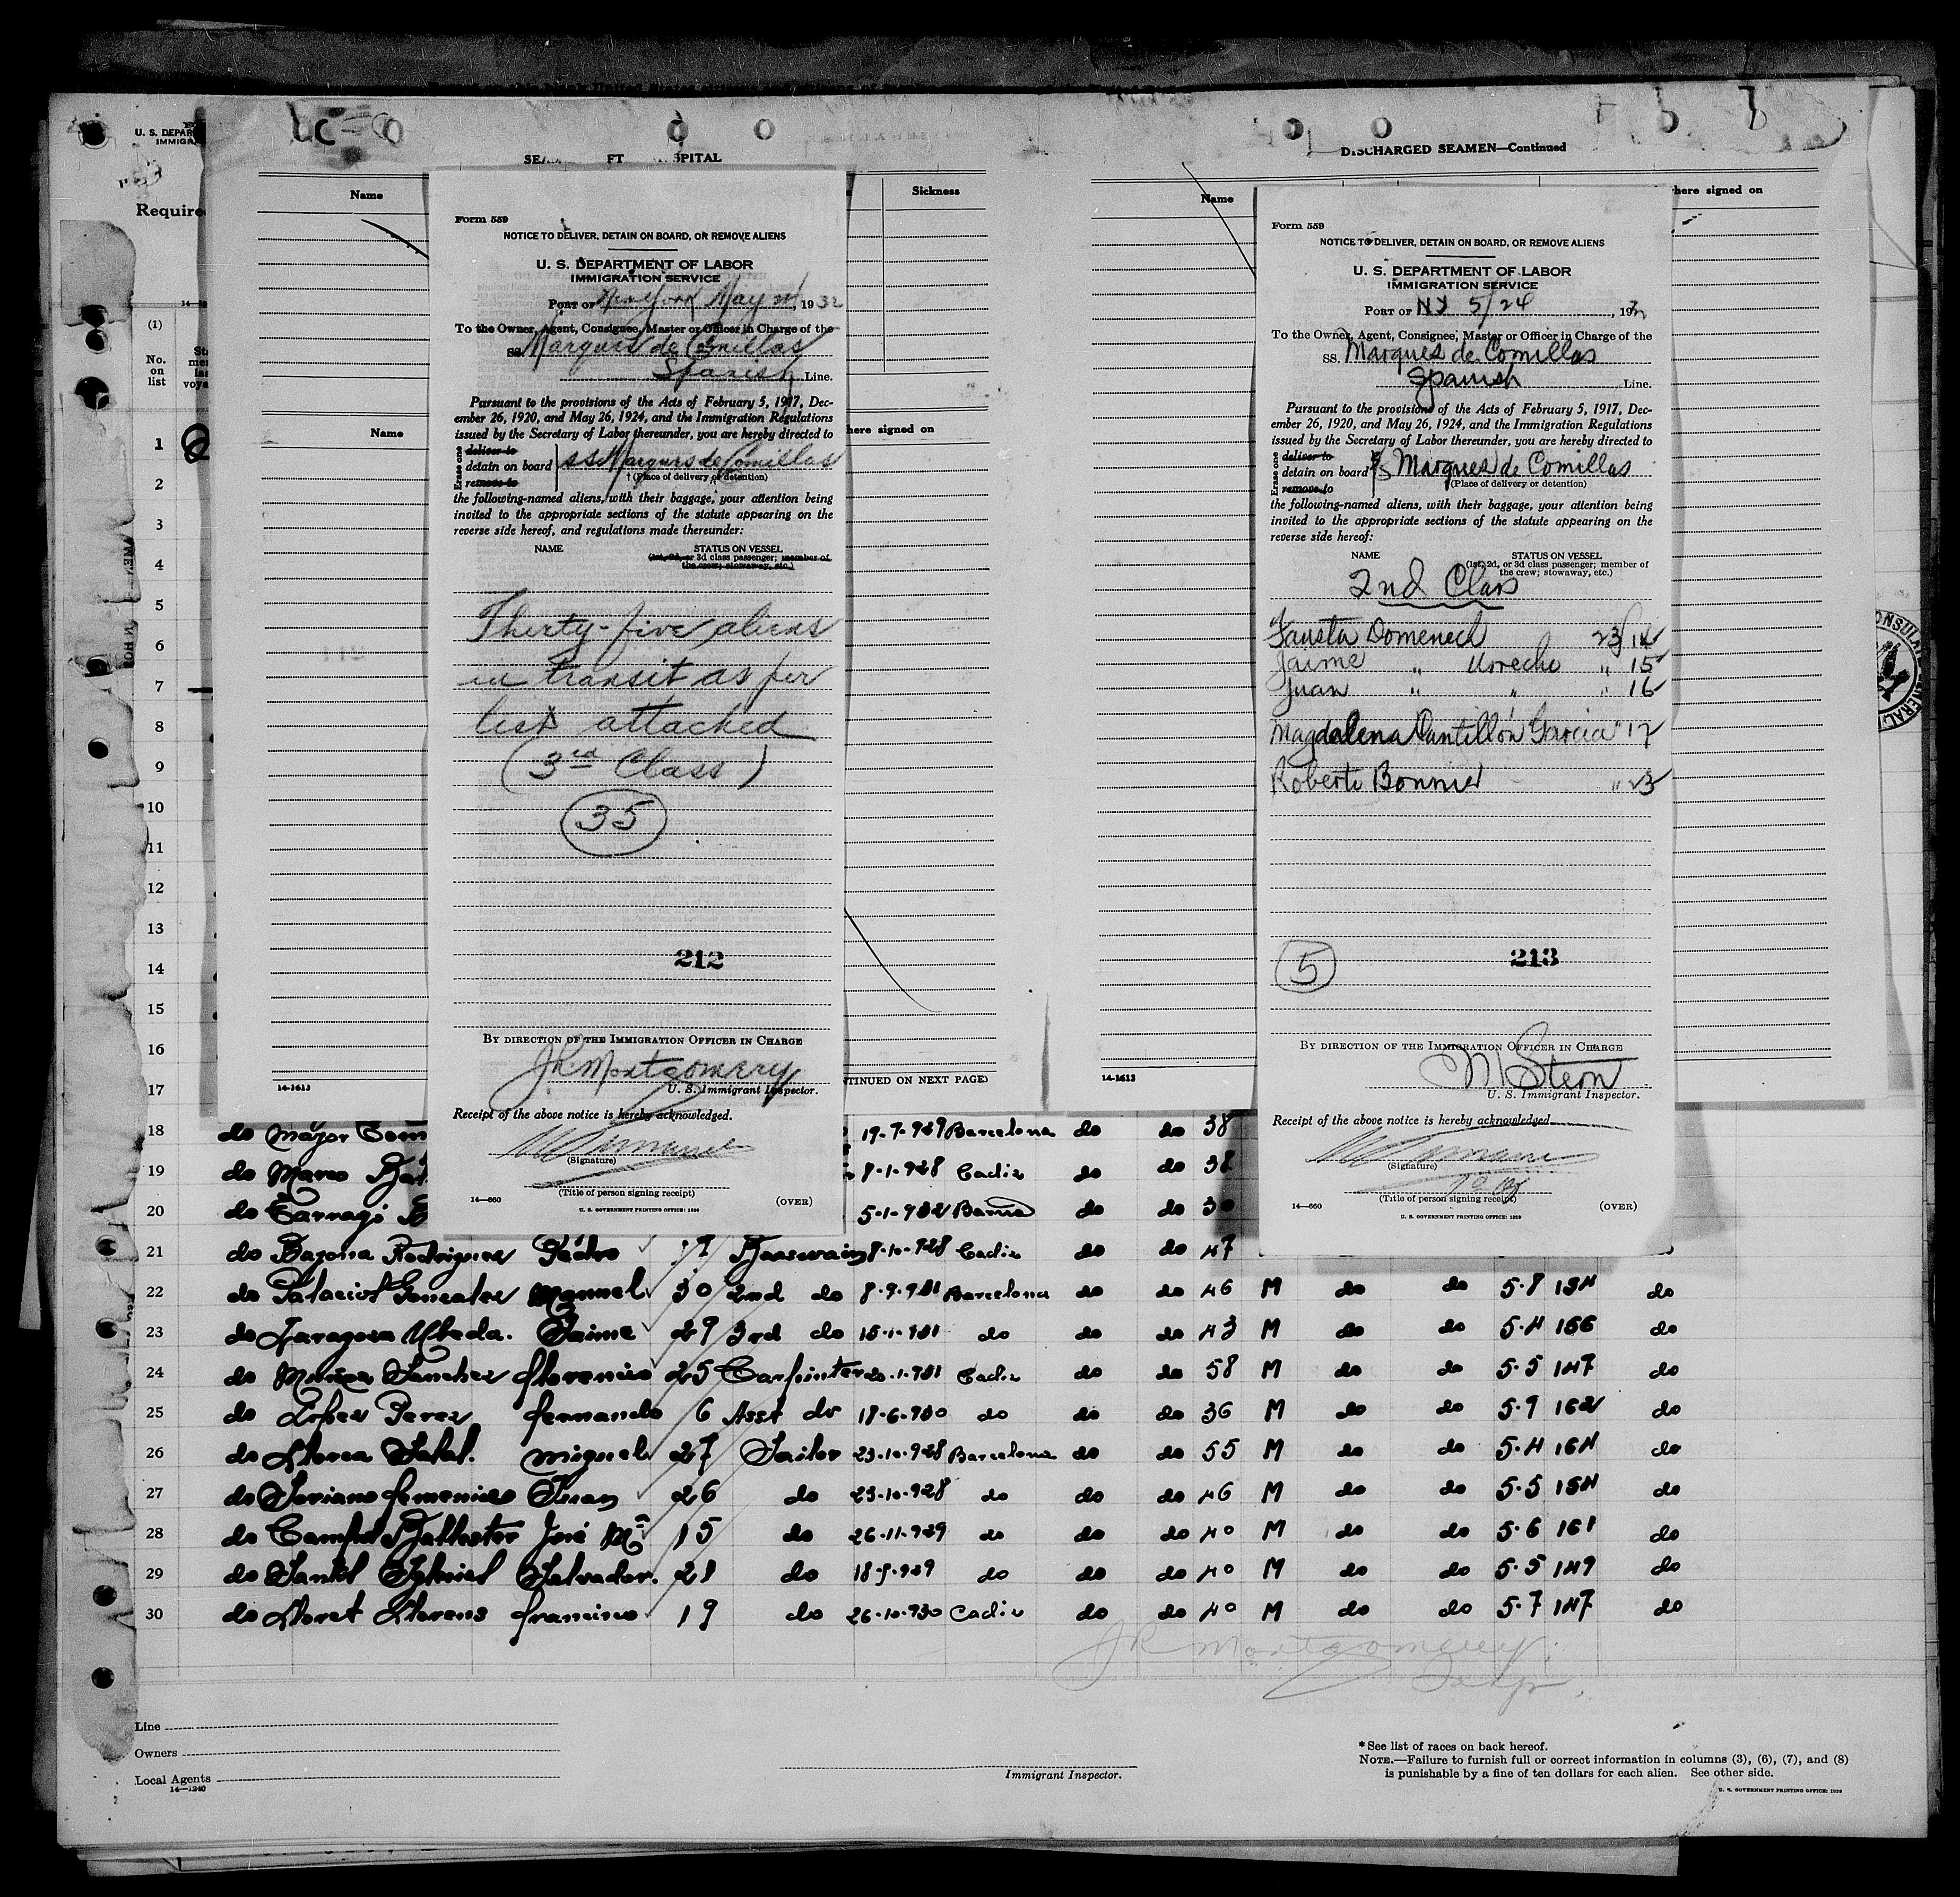 U. S. DEPAR
IMMIGR
Require
(1)
No.
on
list
SEA FT SPITAL
Name
Sickness
Name
here signed on
DISCHARGED SEAMEN—Continued
Name
here signed on
Form 559
NOTICE TO DELIVER, DETAIN ON BOARD, OR REMOVE ALIENS
U. S. DEPARTMENT OF LABOR
IMMIGRATION SERVICE
PORT OF New York May 24, 1932
To the Owner, Agent, Consignee, Master or Officer in Charge of the
SS. Marques de Comillas
Spanish Line.
Pursuant to the provisions of the Acts of February 5, 1917, Dec-
ember 26, 1920, and May 26, 1924, and the Immigration Regulations
issued by the Secretary of Labor thereunder, you are hereby directed to
Erase one
deliver to
detain on board SS Marques de Comillas
remove to
† (Place of delivery or detention)
the following-named aliens, with their baggage, your attention being
invited to the appropriate sections of the statute appearing on the
reverse side hereof, and regulations made thereunder:
NAME STATUS ON VESSEL
(1st, 2d, or 3d class passenger; member of
the crew; stowaway, etc.)
Thirty-five aliens
in transit as per
list attached
(3rd Class)
35
212
BY DIRECTION OF THE IMMIGRATION OFFICER IN CHARGE
JR Montgomery
U. S. Immigrant Inspector.
Receipt of the above notice is hereby acknowledged.
(Signature)
(Title of person signing receipt)
14—660 (OVER)
U. S. GOVERNMENT PRINTING OFFICE: 1930
Form 559
NOTICE TO DELIVER, DETAIN ON BOARD, OR REMOVE ALIENS
U. S. DEPARTMENT OF LABOR
IMMIGRATION SERVICE
PORT OF NY 5/24, 1932
To the Owner, Agent, Consignee, Master or Officer in Charge of the
SS. Marques de Comillas
Spanish Line.
Pursuant to the provisions of the Acts of February 5, 1917, Dec-
ember 26, 1920, and May 26, 1924, and the Immigration Regulations
issued by the Secretary of Labor thereunder, you are hereby directed to
Erase one
deliver to
detain on board SS Marques de Comillas
remove to
(Place of delivery or detention)
the following-named aliens, with their baggage, your attention being
invited to the appropriate sections of the statute appearing on the
reverse side hereof:
NAME STATUS ON VESSEL
(1st, 2d, or 3d class passenger; member of
the crew; stowaway, etc.)
2nd Class
Fausta Domenech 23/14
Jaime " Urrecho " 15
Juan " " " 16
Magdalena Cantillón Garcia " 17
Roberto Bonnier " 23
5
213
BY DIRECTION OF THE IMMIGRATION OFFICER IN CHARGE
M Stern
U. S. Immigrant Inspector.
Receipt of the above notice is hereby acknowledged
(Signature)
(Title of person signing receipt)
14—660 (OVER)
U. S. GOVERNMENT PRINTING OFFICE: 1929
14-1613
(CONTINUED ON NEXT PAGE)
14-1613
1
2
3
4
5
6
7
8
9
10
11
12
13
14
15
16
17
18 do Mayor 19-7-929 Barcelona do do 38
19 do Marco 8-1-928 Cadiz do do 38
20 do Tarragó 5-1-932 Barna do do 30
21 do Bazona Rodriguez Pedro 17 Boaswain 8-10-928 Cadiz do do 47
22 do Palacios Gonzalez Manuel 30 2nd do 8-9-931 Barcelona do do 46 M do do 5-8 134 do
23 do Zaragoza Ubeda. Jaime 29 3rd do 15-1-931 do do do 43 M do do 5-4 166 do
24 do Sanchez Florencio 25 Carpinter 20-1-931 Cadiz do do 58 M do do 5-5 147 do
25 do Lopez Perez Fernando 6 Asst do 17-6-930 do do do 36 M do do 5-9 162 do
26 do Llorca Miguel 27 Sailor 23-10-928 Barcelona do do 55 M do do 5-4 164 do
27 do Soriano Femenias Juan 26 do 23-10-928 do do do 46 M do do 5-5 154 do
28 do Ballester José Mª 15 do 26-11-929 do do do 40 M do do 5-6 161 do
29 do Salvador. 21 do do do do 40 M do do 5-5 149 do
30 do Lloret Llorens Francisco 19 do 26-10-930 Cadiz do do 40 M do do 5-7 147 do
JR Montgomery
Insp.
Line
Owners
Local Agents
14—1240
Immigrant Inspector.
*See list of races on back hereof.
NOTE.—Failure to furnish full or correct information in columns (3), (6), (7), and (8)
is punishable by a fine of ten dollars for each alien. See other side.
U. S. GOVERNMENT PRINTING OFFICE: 1930